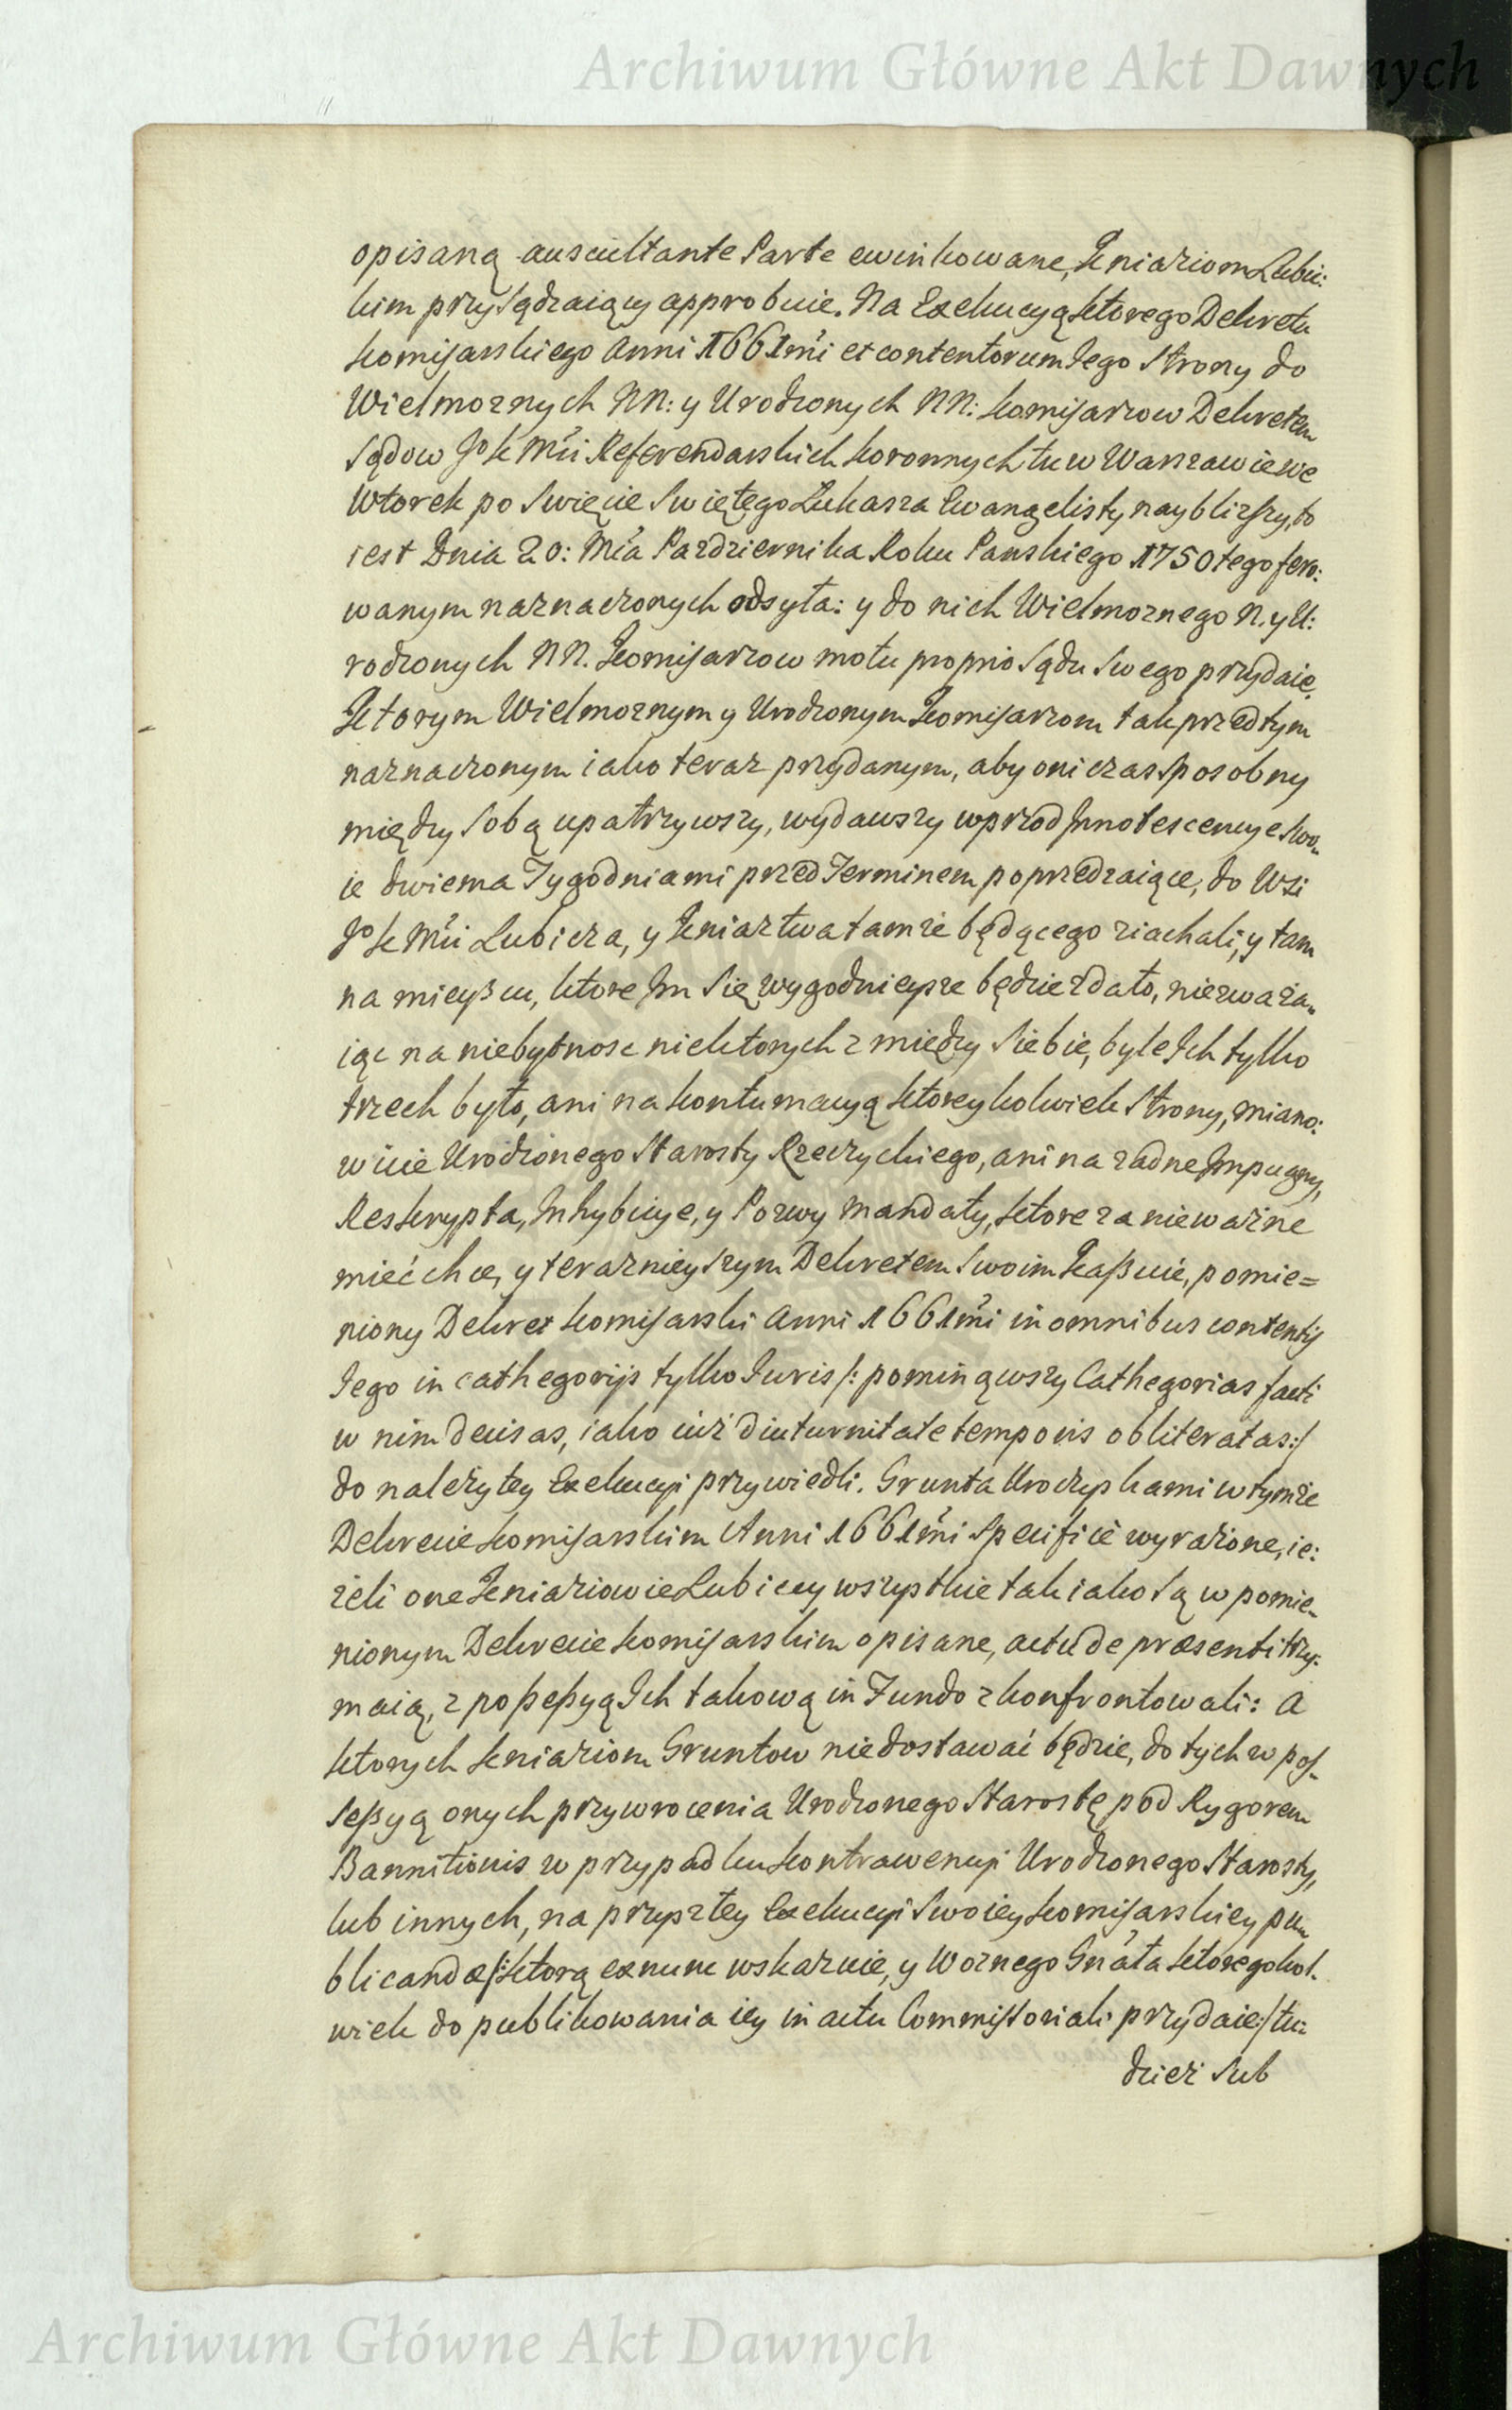 Archiwum Główne Akt Dawnych
opisaną auscultante Parte ewinkowane, Kniaziom Lubic:
kim przysądzaiący approbuie. Na Exekucyą ktorego Dekretu
komisarskiego Anni 1661mi et contentorum Jego Strony do
Wielmoznych NN: y Urodzonych NN: komisarzow Dekretem
Sądow Jo K Mci Referendarskich koronnych tu w Warszawie we
Wtorek po Swięcie Swiętego Łukasza Ewangelisty nayblizszy, to
iest Dnia 20: Mca Pazdziernika Roku Panskiego 1750tego fero:
wanym naznaczonych odsyła: y do nich Wielmoznego N. y U:
rodzonych NN. Komisarzow motu proprio Sądu Swego przydaie.
Ktorym Wielmoznym y Urodzonym Komisarzom tak przedtym
naznaczonym iako teraz przydanym, aby oni czas sposobny
między Sobą upatrzywszy, wydawszy wprzod Innotescencye Swo„
ie dwiema Tygodniami przed Terminem poprzedzaiące, do Wsi
Jo K Mci Lubicza, y Kniaztwa tamże będącego ziachali, y tam
na mieyscu, ktore Im Się wygodnieysze będzie zdało, niezważa„
iąc na niebytnosc niektorych z między Siebie, byle Ich tylko
trzech było, ani na kontumacyą ktoreykolwiek Strony, miano:
wicie Urodzonego Starosty Rzeczyckiego, ani na żadne Impugny,
Reskrypta, Inhybicye, y Pozwy mandaty, ktore za nieważne
mieć chce, y teraznieyszym Dekretem Swoim Kaßuie, pomie=
niony Dekret komisarski Anni 1661mi in omnibus contentis
Jego in cathegorijs tylko Juris /: pominąwszy Cathegorias facti
w nim decisas, iako iuż diuturnitate temporis obliteratas :/
do należytey Exekucyi przywiedli. Grunta Uroczyskami w tymże
Dekrecie komisarskim Anni 1661mi Specifice wyrażone, ie:
żeli one Kniaziowie Lubiccy wszystkie tak iako są w pomie„
nionym Dekrecie komisarskim opisane, actu de præsenti trzy:
maią, z poßeßyą Ich takową in Fundo zkonfrontowali: A
ktorych kniaziom Gruntow niedostawać będzie, do tych w pos„
seßyą onych przywrocenia Urodzonego Starostę pod Rygorem
Bannitionis w przypadku kontrawencyi Urodzonego Starosty,
lub innych, na przyszłey Exekucyi Swoiey komisarskiey pu„
blicandæ /: ktorą exnunc wskazuie, y Woznego Gnāta ktoregokol:
wiek do publikowania iey in actu Commissoriali przydaie :/ tu:
dzież Sub
Archiwum Główne Akt Dawnych